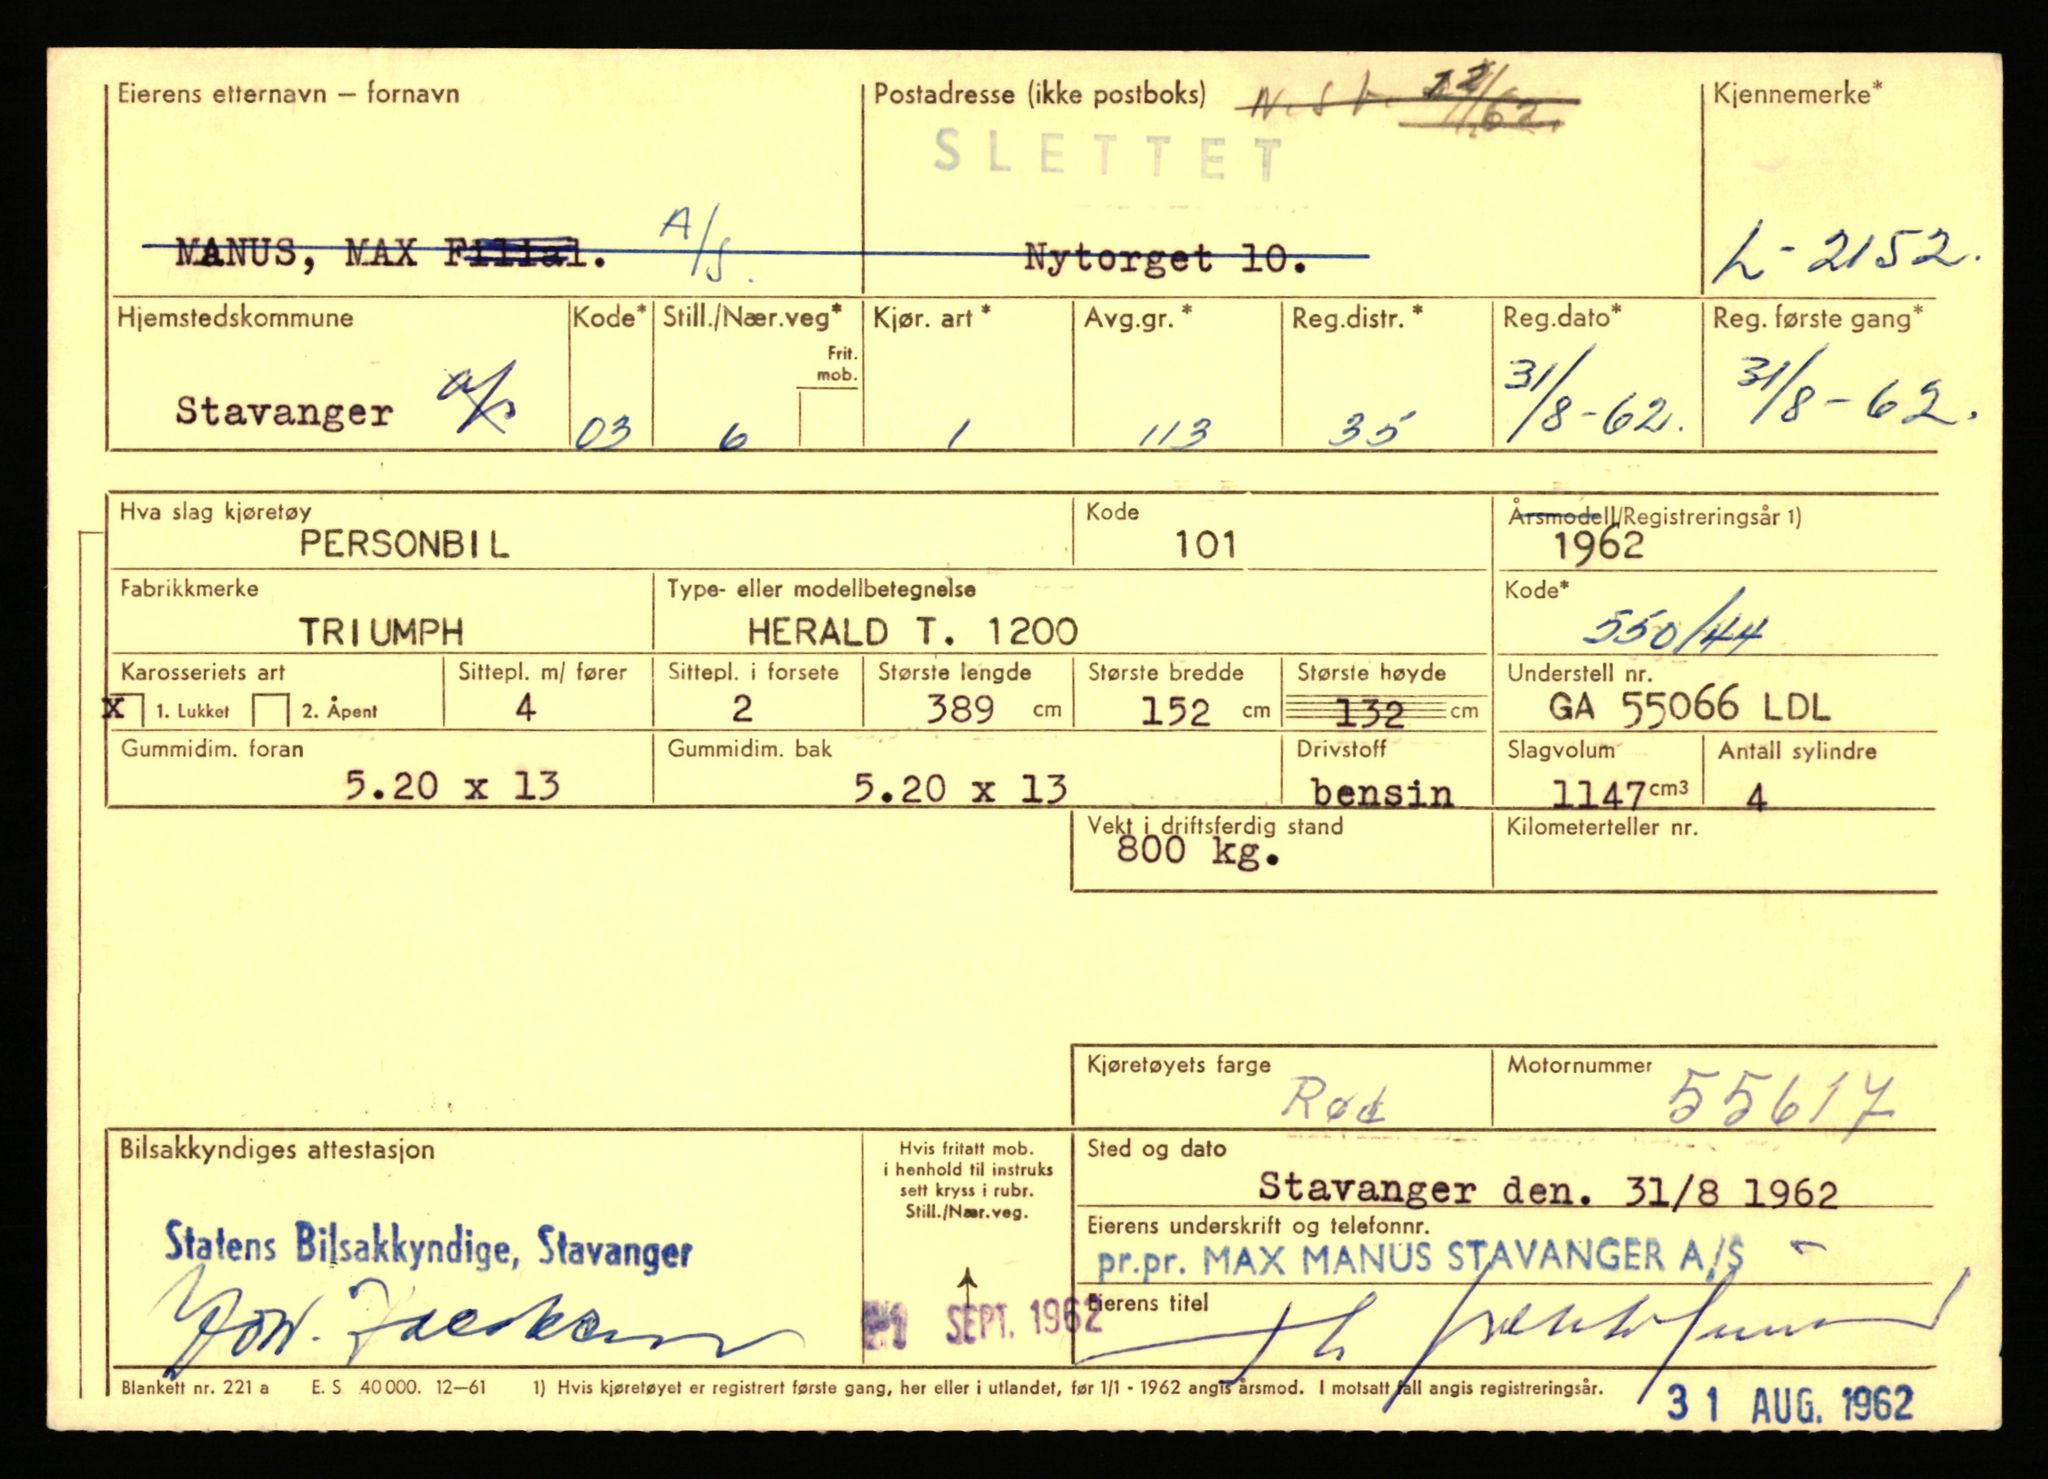 Eierens etternavn – fornavn
Postadresse (ikke postboks)
N.St. 22/11 62.
Kjennemerke*
SLETTET
MANUS, MAX Filial. A/S.
Nytorget 10.
L-2152.
Hjemstedskommune
Kode*
Still./Nær.veg*
Kjør. art*
Avg.gr.*
Reg.distr.*
Reg.dato*
Reg. første gang*
Frit.
mob.
Stavanger a/s
03
6
1
113
35
31/8-62.
31/8-62.
Hva slag kjøretøy
Kode
Årsmodell/Registreringsår 1)
PERSONBIL
101
1962
Fabrikkmerke
Type- eller modellbetegnelse
Kode*
TRIUMPH
HERALD T. 1200
550/44
Karosseriets art
Sittepl. m/ fører
Sittepl. i forsete
Største lengde
Største bredde
Største høyde
Understell nr.
x 1. Lukket 2. Åpent
4
2
389 cm
152 cm
132 cm
GA 55066 LDL
Gummidim. foran
Gummidim. bak
Drivstoff
Slagvolum
Antall sylindre
5.20 x 13
5.20 x 13
bensin
1147 cm3
4
Vekt i driftsferdig stand
Kilometerteller nr.
800 kg.
Kjøretøyets farge
Motornummer
Rød
55617
Bilsakkyndiges attestasjon
Hvis fritatt mob.
i henhold til instruks
sett kryss i rubr.
Still./Nær.veg.
Sted og dato
Stavanger den. 31/8 1962
Eierens underskrift og telefonnr.
Statens Bilsakkyndige, Stavanger
pr.pr. MAX MANUS STAVANGER A/S
Eierens titel
SEPT. 1962
Blankett nr. 221 a E. S 40 000. 12–61 1) Hvis kjøretøyet er registrert første gang, her eller i utlandet, før 1/1 - 1962 angis årsmod. I motsatt fall angis registreringsår.
31 AUG. 1962